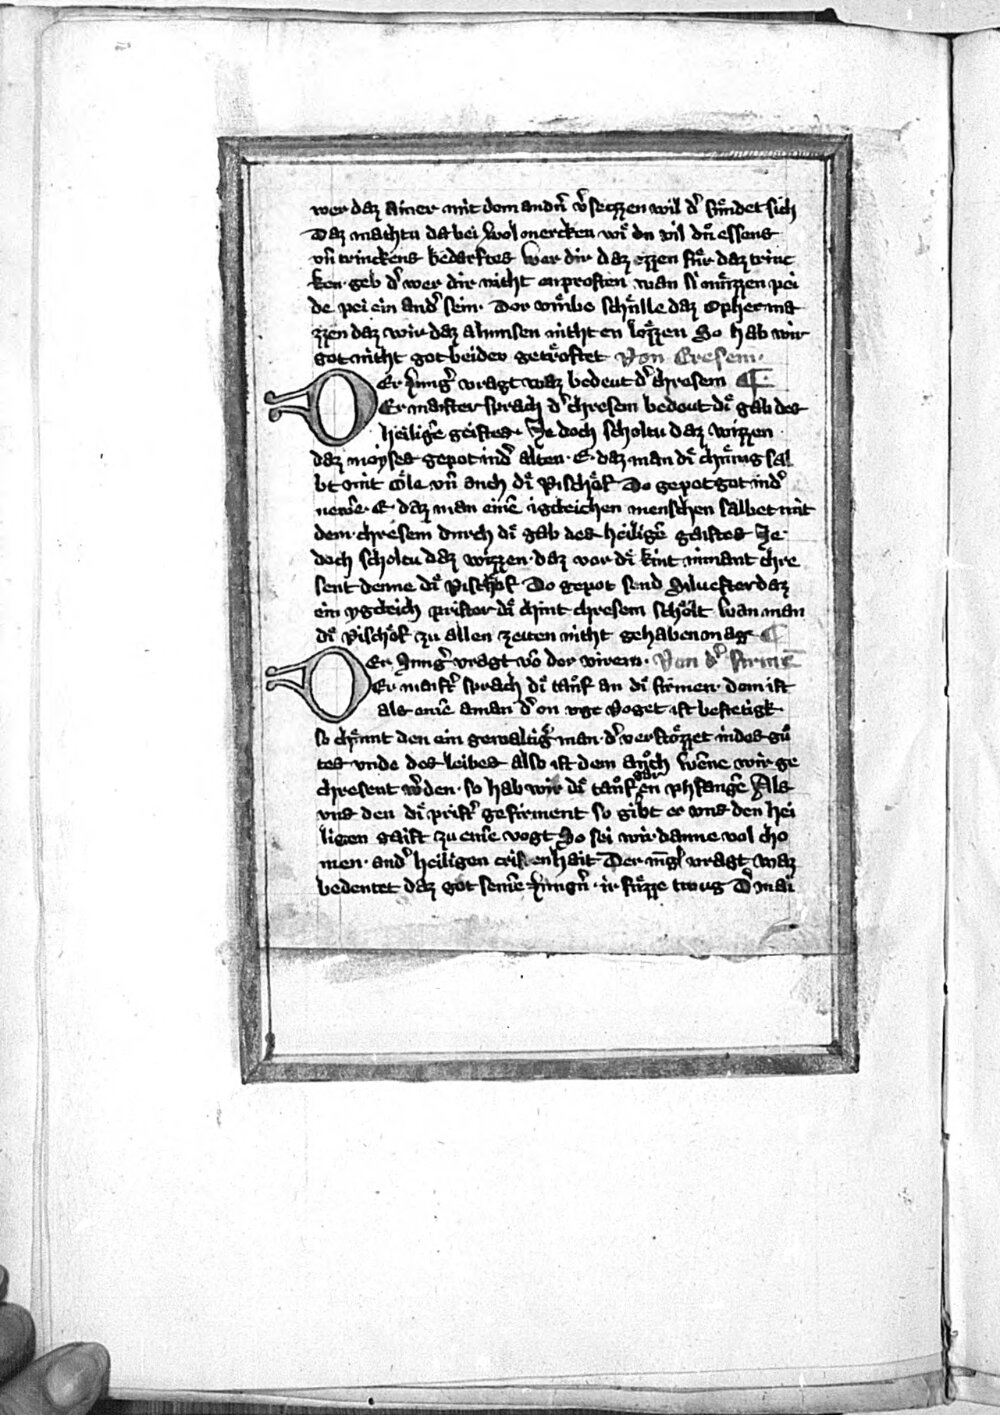 wer daz ainer mit dem andn̄ v̾seczzen wil d̾ sundet sich
Daz machtu da bei wol mercken wiͤ du vil dinͤ essens
vn̄ trinckens bedarftes wer dir daz ezzen fuͤr daz trinc
ken geb d̾ wer dir nicht enprosten wan si muͤzzen pei
de pei ein and̾ sein · Dor vmbe schuͤlle daz opher ma
zzen daz wir daz almusen nicht en lazzen So hab wir
got nicht got beider getroͤstet Von Cresem ·
DEr Jung̾ vragt waz bedeut d̾ chresem
Er maister sprach d̾ chresem bedeut diͤ gab des
heiliḡe geistes · Je doch scholtu daz wizzen
daz moyses gepot ind̾ alten · E · daz man diͤ chuͤnig sal
bt mit oͤle vn̄ auch diͤ Pischoͤf Do gepot got ind̾
newē · E · daz man einē igcleichen menschen salbet mit
dem · chresem durch diͤ gab des heiligē gaistes Je
doch scholtu daz wizzen · daz vor diͤ kint nimant chre
sent denne diͤ Pischoͤf Do gepot send Siluester daz
ein ygcleich prister diͤ chint chresem scholt wan man
diͤ Pischoͤf zu allen zeiten nicht gehaben mag
DEr Jung̾ vragt vō der virem · Von d̾ firmē
Er maist̾ sprach diͤ tauf an diͤ firmen · dem ist
als einē aman d̾ on vgt Voget ist bestetigk
so chuͤmt den ein gewaltig̾ man · d̾ verstoͤzzet in des guͤ
tes vnde des leibes also ist dem auͦch wēne wir ge
chresent w̾den · so hab wir diͤ tauͦf gar en phfangē Als
vns den diͤ prist̾ gefirment so gibt er vns den hei
ligen gaist zu einē vogt So sei wir danne vol cho
men · and̾ heiligen cristenhait Der iung̾ vragt waz
bedeutet daz got seinē Jungn̄ · ir fuͤzze twug D̾ mai